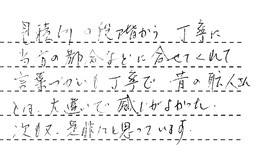 見積りの段階から 丁寧に
当方の都合などに合せてくれて
言葉づかいも丁寧で 昔の職人さん
とは、大違いで感じがよかった。
次も又、是非にと思っています。